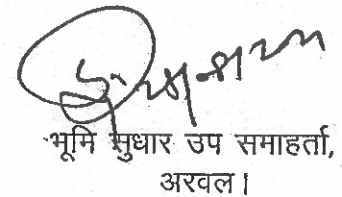 भूमि सुधार उप समाहर्ता,
अरवल।